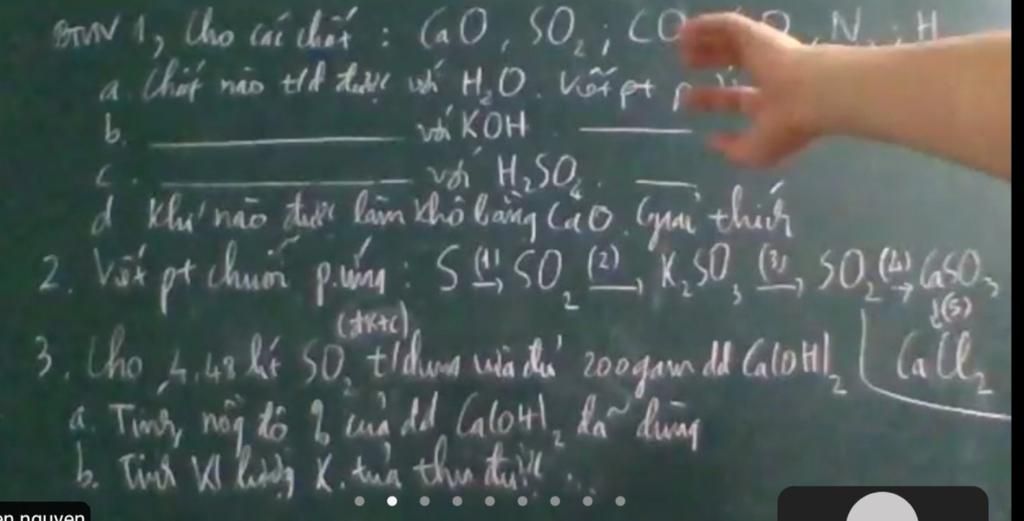 BTVN 1, Cho các chất : CaO, SO2; CO , N ; H
a. Chất nào t/d được với H2O. Viết pt
b. ____ với KOH ____
c. ____ với H2SO4. ____
d Khí nào được làm khô bằng CaO. Giải thích
2. Viết pt chuỗi p.ứng : S (1)→ SO2 (2)→ K2SO3 (3)→ SO2 (4)→ CaSO3
↓(5)
(đktc) CaCl2
3. Cho 4,48 lít SO2 t/dụng vừa đủ 200gam dd Ca(OH)2
a. Tính nồng độ % của dd Ca(OH)2 đã dùng
b. Tính Kl lượng K. tủa thu được...
en nguyen